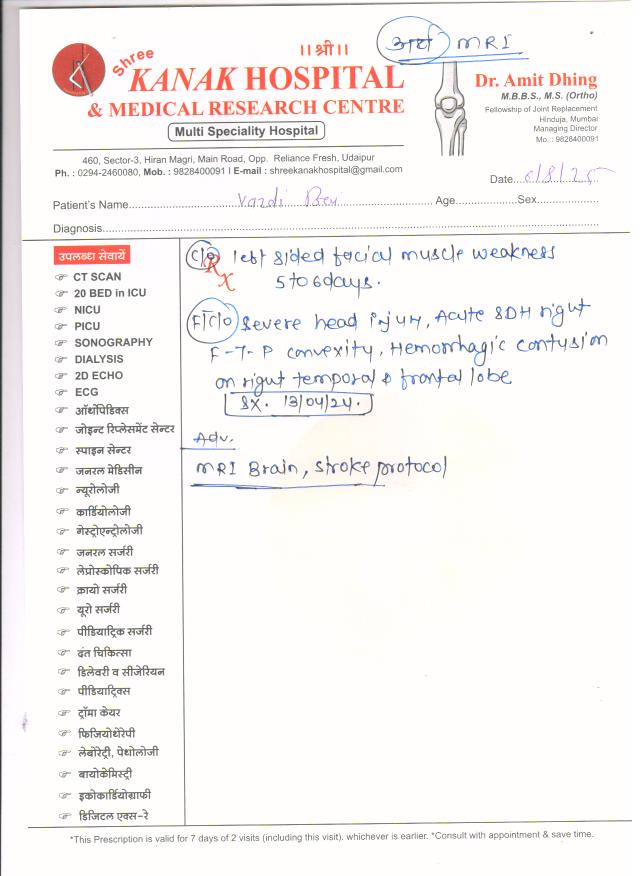 ।। श्री ।।
अर्थ MRI
Shree
KANAK HOSPITAL
& MEDICAL RESEARCH CENTRE
Multi Speciality Hospital
Dr. Amit Dhing
M.B.B.S., M.S. (Ortho)
Fellowship of Joint Replacement
Hinduja, Mumbai
Managing Director
Mo. : 9828400091
460, Sector-3, Hiran Magri, Main Road, Opp. Reliance Fresh, Udaipur
Ph. : 0294-2460080, Mob. : 9828400091 I E-mail : shreekanakhospital@gmail.com
Date 6/8/25
Patient's Name Vardi Age Sex
Diagnosis
उपलब्ध सेवायें
CT SCAN
20 BED in ICU
NICU
PICU
SONOGRAPHY
DIALYSIS
2D ECHO
ECG
ऑर्थोपिडिक्स
जोइन्ट रिप्लेसमेंट सेन्टर
स्पाइन सेन्टर
जनरल मेडिसीन
न्यूरोलोजी
कार्डियोलोजी
गेस्ट्रोएन्ट्रोलोजी
जनरल सर्जरी
लेप्रोस्कोपिक सर्जरी
क्रायो सर्जरी
यूरो सर्जरी
पीडियाट्रिक सर्जरी
दंत चिकित्सा
डिलेवरी व सीजेरियन
पीडियाट्रिक्स
ट्रॉमा केयर
फिजियोथेरेपी
लेबोरेट्री, पेथोलोजी
बायोकेमिस्ट्री
इकोकार्डियोग्राफी
डिजिटल एक्स-रे
Rx
C/o left sided facial muscle weakness
5 to 6 days.
F/C/O Severe head injury, Acute SDH right
F-T-P convexity, Hemorrhagic contusion
on right temporal & frontal lobe
Sx. 13/04/24.
Adv.
MRI Brain, stroke protocol
*This Prescription is valid for 7 days of 2 visits (including this visit). whichever is earlier. *Consult with appointment & save time.